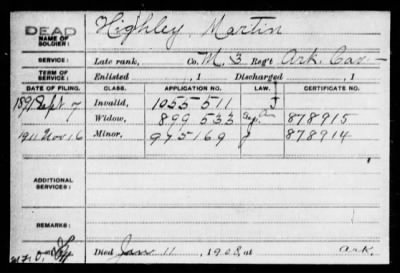 DEAD
NAME OF SOLDIER: Highley, Martin
SERVICE: Late rank, Co. M, 3 Reg't Ark. Cav.
TERM OF SERVICE: Enlisted , 1 Discharged , 1
DATE OF FILING. CLASS. APPLICATION NO. LAW. CERTIFICATE NO.
1891 Sept 7 Invalid, 1055 511 J
Widow, 899 533 878915
1911 Nov 16 Minor, 975169 878914
ADDITIONAL SERVICES:
REMARKS:
Died Jan 11, 1908, at Ark.